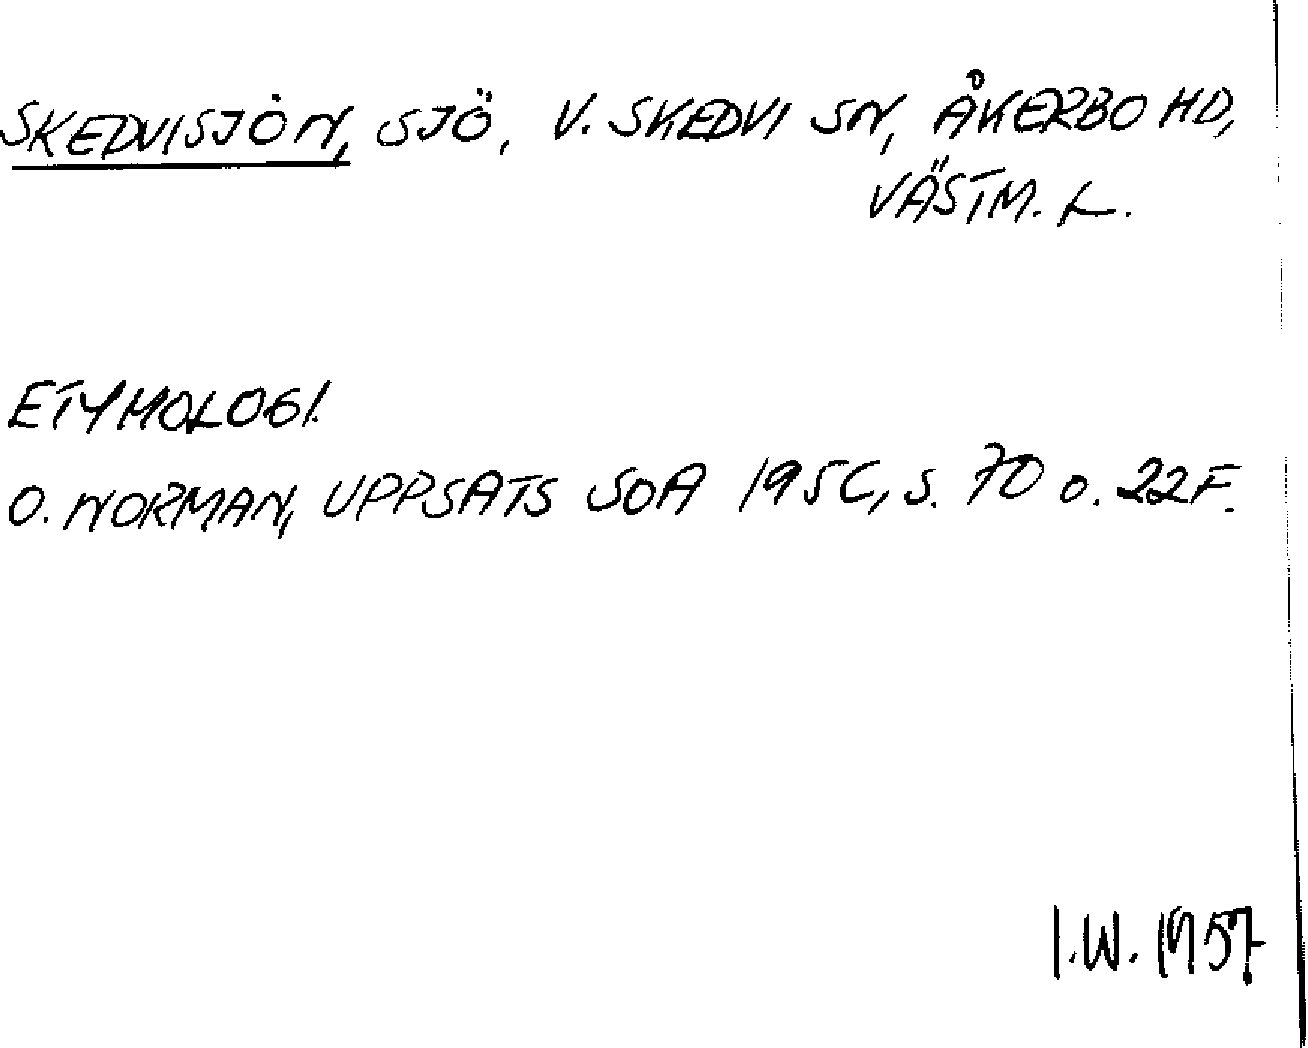 SKEDVISJÖN, SJÖ, V. SKEDVI SN, ÅKERBO HD,
VÄSTM. L.
ETYMOLOGI.
O. NORMAN, UPPSATS SOA 195C, S. 70 O. 22F.
I.W. 1957